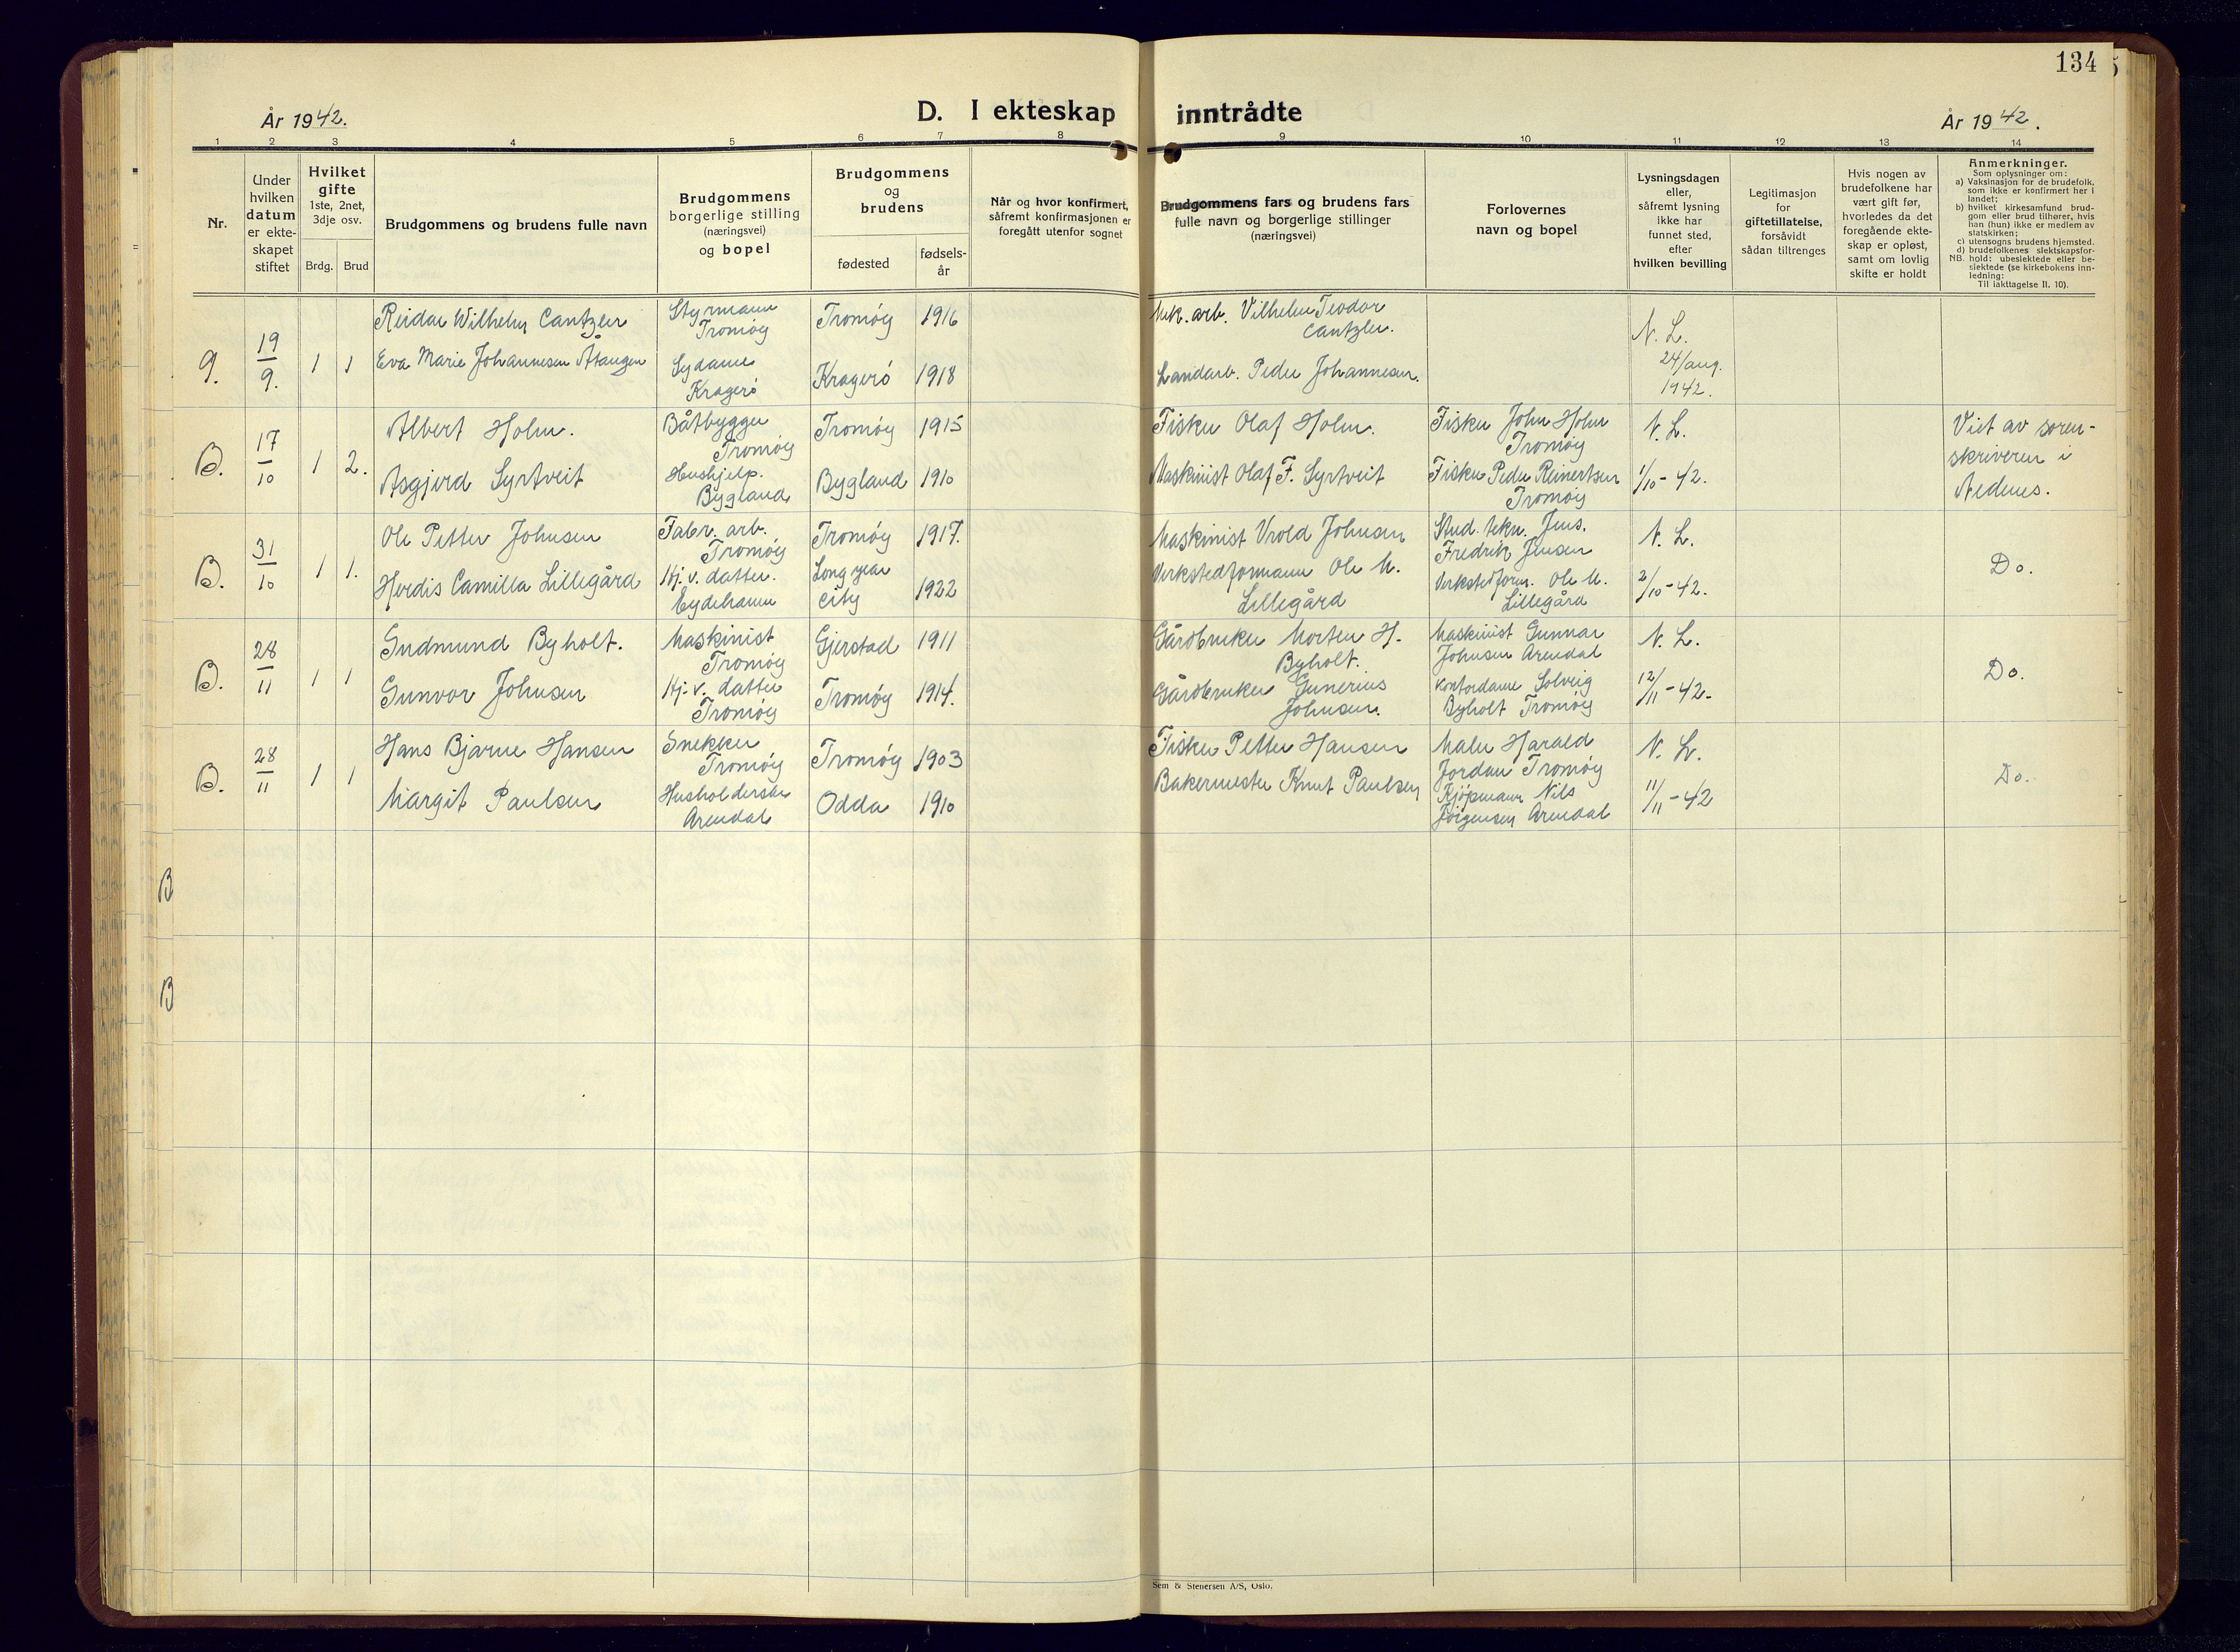 134
År 1942.
D. I ekteskap inntrådte
År 1942.
1 2 3 4 5 6 7 8 9 10 11 12 13 14
Nr.
Under
hvilken
datum
er ekte-
skapet
stiftet
Hvilket
gifte
1ste, 2net,
3dje osv.
Brdg. Brud
Brudgommens og brudens fulle navn
Brudgommens
borgerlige stilling
(næringsvei)
og bopel
Brudgommens
og
brudens
fødested
fødsels-
år
Når og hvor konfirmert,
såfremt konfirmasjonen er
foregått utenfor sognet
Brudgommens fars og brudens fars
fulle navn og borgerlige stillinger
(næringsvei)
Forlovernes
navn og bopel
Lysningsdagen
eller,
såfremt lysning
ikke har
funnet sted,
efter
hvilken bevilling
Legitimasjon
for
giftetillatelse,
forsåvidt
sådan tiltrenges
Hvis nogen av
brudefolkene har
vært gift før,
hvorledes da det
foregående ekte-
skap er opløst,
samt om lovlig
skifte er holdt
Anmerkninger.
Som oplysninger om:
a) Vaksinasjon for de brudefolk,
som ikke er konfirmert her i
landet;
b) hvilket kirkesamfund brud-
gom eller brud tilhører, hvis
han (hun) ikke er medlem av
statskirken;
c) utensogns brudens hjemsted.
d) brudefolkenes slektskapsfor-
NB. hold: ubeslektede eller be-
slektede (se kirkebokens inn-
ledning:
Til iakttagelse II. 10).
9. 19/9. 1 1
Reidar Wilhelm Cantzler
Styrmann
Tromøy
Tromøy 1916
Mek. arb. Vilhelm Teodor
Cantzler.
N. L.
24/aug.
1942.
Eva Marie Johannesen Åtangen
Sydame
Kragerø
Kragerø 1918
Landarb. Peder Johannesen.
B. 17/10 1 2.
Albert Holm.
Båtbygger
Tromøy
Tromøy 1915
Fisker Olaf Holm.
Fisker John Holm
Tromøy
N. L.
1/10-42.
Viet av soren-
skriveren i
Nedenes.
Asgjerd Syrtveit
Hushjelp.
Bygland
Bygland 1910
Maskinist Olaf F. Syrtveit
Fisker Peder Reinertsen
Tromøy
B. 31/10 1 1.
Ole Petter Johnsen
Fabr. arb.
Tromøy
Tromøy 1917.
Maskinist Vrold Johnsen
Stud. tekn. Jens.
Fredrik Jensen
N. L.
2/10-42.
Do.
Herdis Camilla Lillegård
Hj. v. datter.
Eydehavn
Longyear
city 1922
Verkstedformann Ole M.
Lillegård
Verkstedform. Ole M.
Lillegård
B. 28/11 1 1
Gudmund Byholt.
Maskinist
Tromøy
Gjerstad 1911
Gårdbruker Morten H.
Byholt.
Maskinist Gunnar
Johnsen Arendal
N. L.
12/11-42.
Do.
Gunvor Johnsen
Hj. v. datter
Tromøy
Tromøy 1914.
Gårdbruker Gunerius
Johnsen.
Kontordame Solveig
Byholt Tromøy
B. 28/11 1 1
Hans Bjarne Hansen
Snekker
Tromøy
Tromøy 1903
Fisker Petter Hansen
Maler Harald
Jordan Tromøy
N. L.
11/11-42
Do.
Margit Paulsen
Husholderske
Arendal
Odda 1910
Bakermester Knut Paulsen
Kjøpmann Nils
Jørgensen Arendal
B
B
Sem & Stenersen A/S, Oslo.